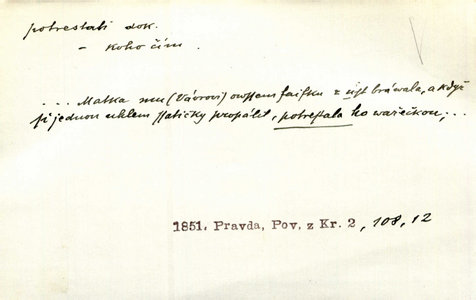 potrestati dok.
– koho čím.
... Matka mu (Vávrovi) owssem faifku z úst brávala, a když
si jednou uhlem ssatičky propálil, potrestala ho wařečkou; ...
1851. Pravda, Pov. z Kr. 2, 108, 12